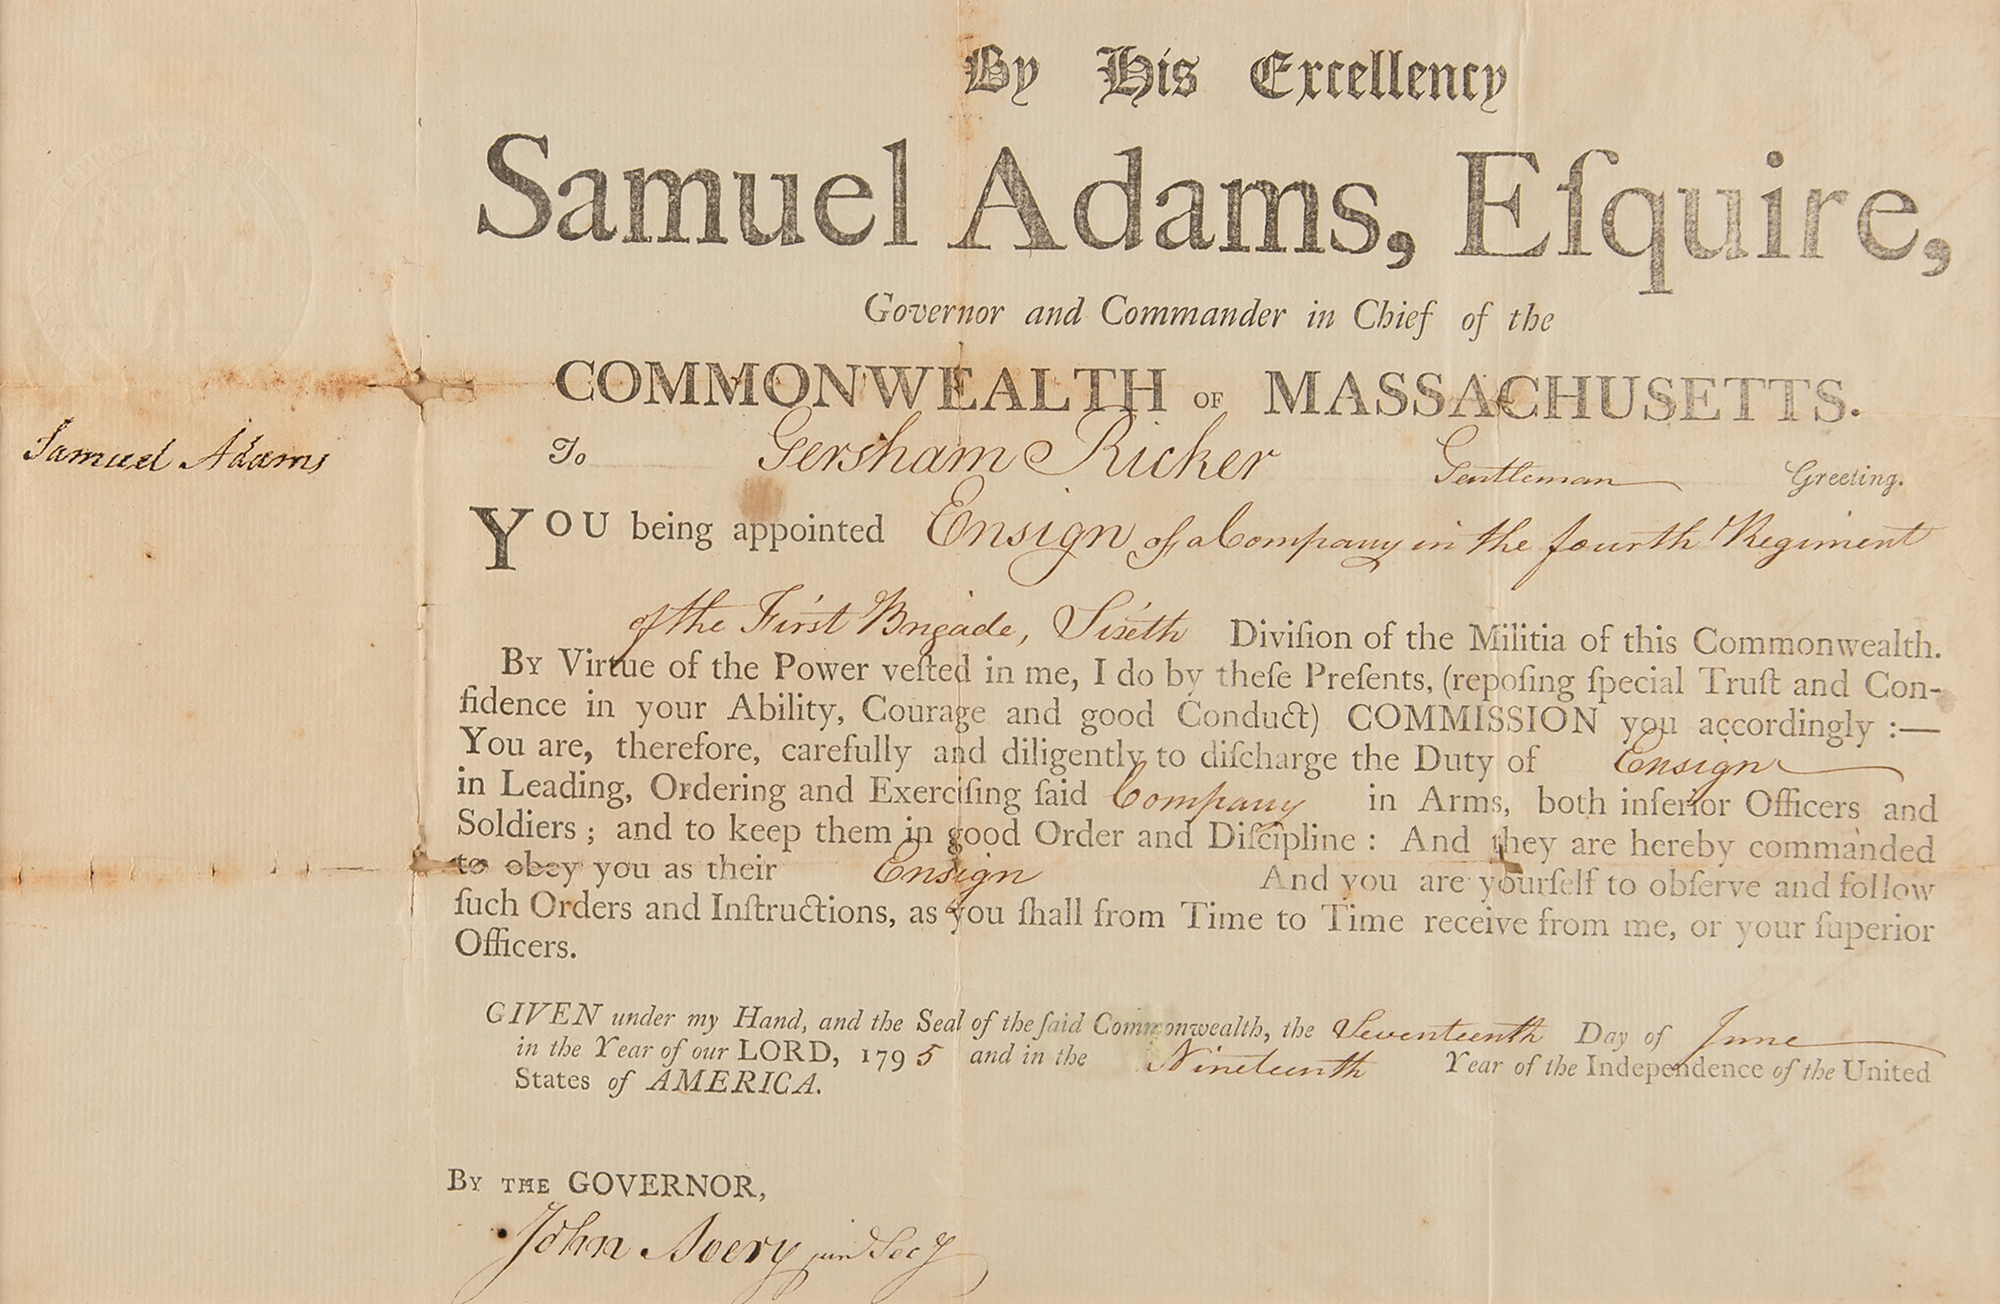 By His Excellency
Samuel Adams, Eſquire,
Governor and Commander in Chief of the
COMMONWEALTH OF MASSACHUSETTS.
Samuel Adams
To Gersham Ricker Gentleman Greeting.
YOU being appointed Ensign of a Company in the fourth Regiment
of the First Brigade, Sixth Diviſion of the Militia of this Commonwealth.
BY Virtue of the Power veſted in me, I do by theſe Preſents, (repoſing ſpecial Truſt and Con-
fidence in your Ability, Courage and good Conduct) COMMISSION you accordingly :—
You are, therefore, carefully and diligently to diſcharge the Duty of Ensign
in Leading, Ordering and Exerciſing ſaid Company in Arms, both inferior Officers and
Soldiers ; and to keep them in good Order and Diſcipline : And they are hereby commanded
to obey you as their Ensign And you are yourſelf to obſerve and follow
ſuch Orders and Inſtructions, as you ſhall from Time to Time receive from me, or your ſuperior
Officers.
GIVEN under my Hand, and the Seal of the ſaid Commonwealth, the Seventeenth Day of June
in the Year of our LORD, 1795 and in the Nineteenth Year of the Independence of the United
States of AMERICA.
BY THE GOVERNOR,
John Avery jun Secy